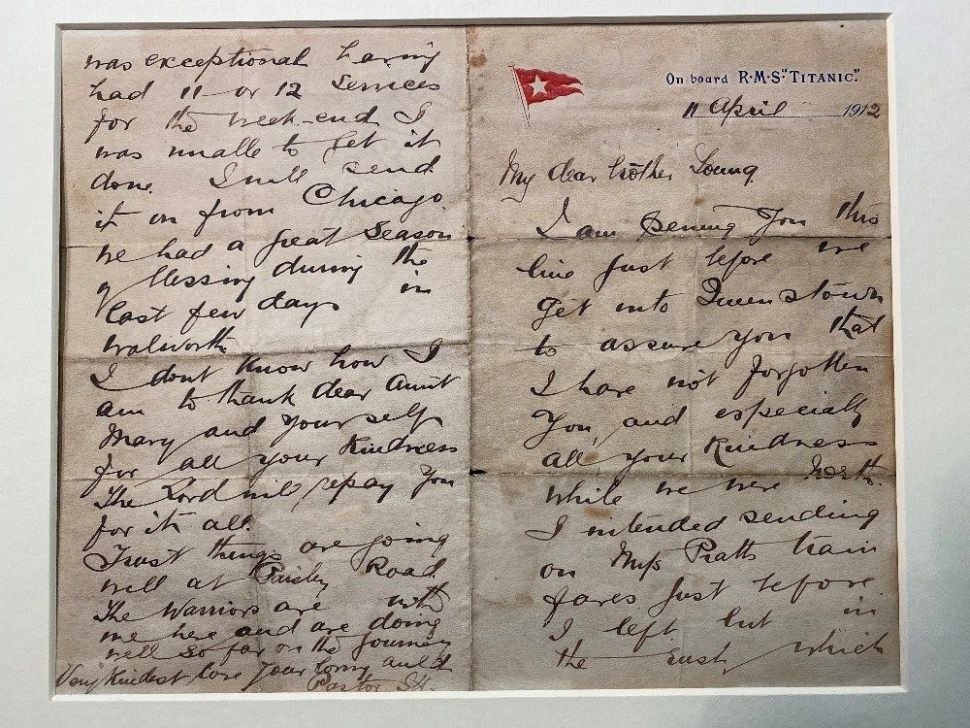 On board R·M·S "TITANIC".
11 April 1912
My dear brother Young.
I am penning you this
line just before we
get into Queenstown
to assure you that
I have not forgotten
you, and especially
all your kindness
while we were North.
I intended sending
on Miss Pratts train
fares just before
I left but in
the rush which
was exceptional having
had 11 or 12 Services
for the week-end I
was unable to get it
done. I will send
it on from Chicago.
We had a great season
of blessing during the
last few days in
Walworth
I dont know how I
am to thank dear Aunt
Mary and yourself
for all your kindness
The Lord will repay you
for it all.
Trust things are going
well at Paisley Road.
The Warriors are with
me here and are doing
well so far on the journey
Very kindest love your loving auld
Pastor